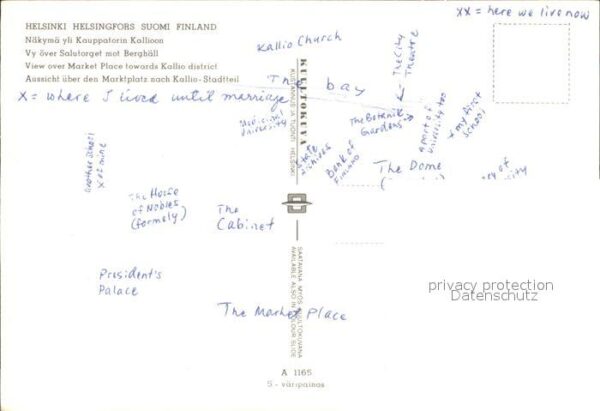 HELSINKI HELSINGFORS SUOMI FINLAND
Näkymä yli Kauppatorin Kallioon
Vy över Salutorget mot Berghäll
View over Market Place towards Kallio district
Aussicht über den Marktplatz nach Kallio-Stadtteil
xx = here we live now
Kallio Church
The City
Theatre
The bay
x = where I lived until marriage
Medicinal
University
The Botanic
Gardens
apart of
University too
x my first
school
another school
x of mine
State
Archives
Bank of
Finland
The Dome
The House
of Nobles
(formely)
The
Cabinet
President's
Palace
The Market Place
KULTOKUVA
KUSTANNUS JA TUONTI HELSINKI
SAATAVANA MYÖS KULTOKUVANA
AVAILABLE ALSO IN COLOUR SLIDE
A 1165
S - väripainos
privacy protection
Datenschutz